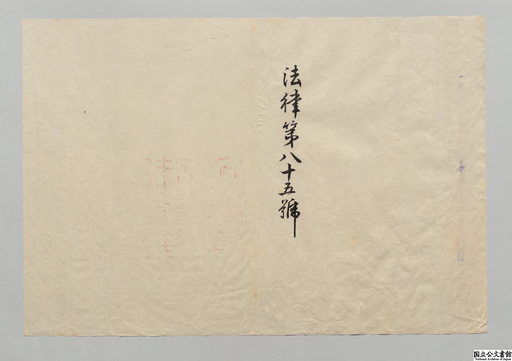 法律第八十五號
国立公文書館
National Archives of Japan